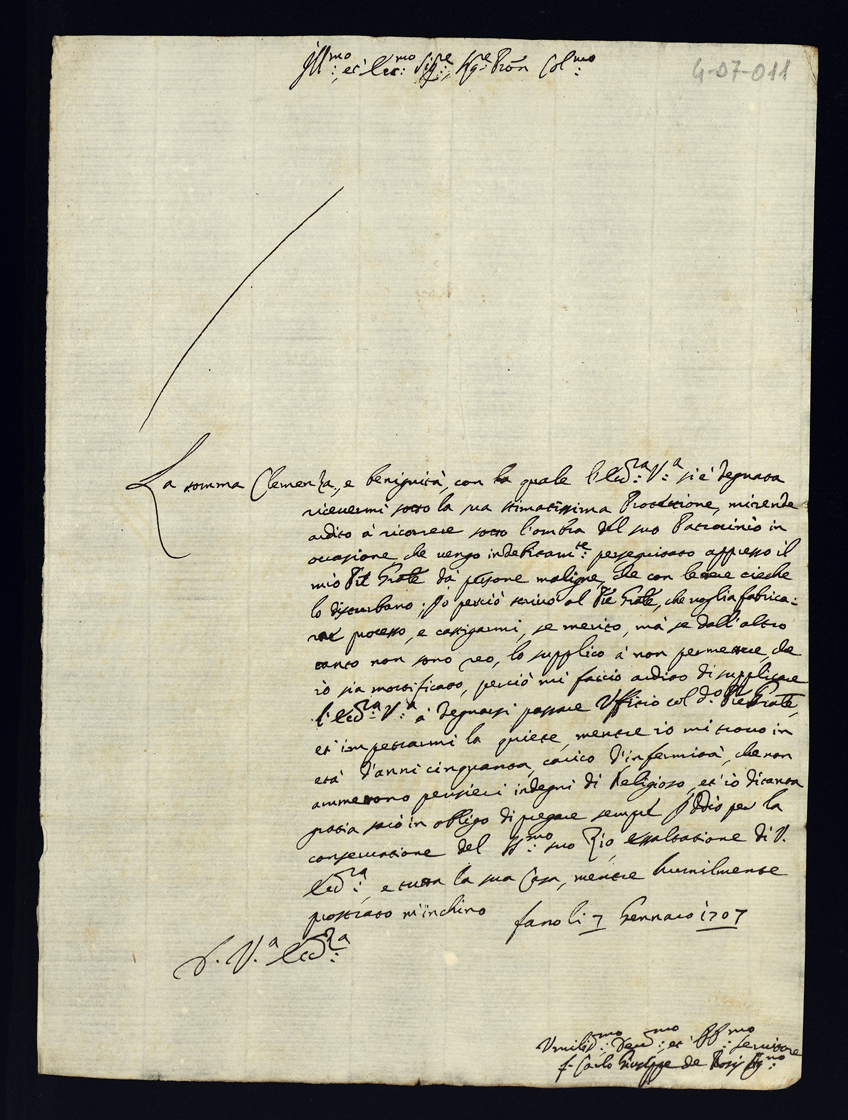 Ill:mo, et Ecc:mo Sig:re, Sig:re Prōn Col:mo
4-07-011
La somma Clemenza, e benignità, con la quale l'Ecc:za V:a si è degnata
ricevermi sotto la sua stimatissima Protettione, mi rende
ardito à ricorrere sotto l'ombra del suo Patrocinio in
occasione che vengo indebitam:te perseguitato appresso il
mio P̄re Gn̄ale da persone maligne, che con lettere cieche
lo disturbano; Io perciò scrivo al P̄re Gn̄ale, che voglia fabrica=
re processo, e castigarmi, se merito, mà se dall'altro
canto non sono reo, lo supplico à non permettere, che
io sia mortificato, perciò mi faccio ardito di supplicare
l'Ecc:za V:a à degnarsi passare Uffitio col d:o P̄re Gn̄ale,
et impetrarmi la quiete, mentre io mi trovo in
età d'anni cinquanta, carico d'infermità, che non
ammettono pensieri indegni di Religioso, et io di tanta
gratia sarò in obligo di pregare sempre Iddio per la
conservatione del S:mo suo Zio, essaltatione di V.
Ecc:za, e tutta la sua Casa, mentre humilmente
prostrato m'inchino Fano li 7 Gennaro 1707
D. V.a Ecc:za
Umiliss:mo Dev:mo et Obb:mo servitore
f. Carlo Giuseppe de Rossi